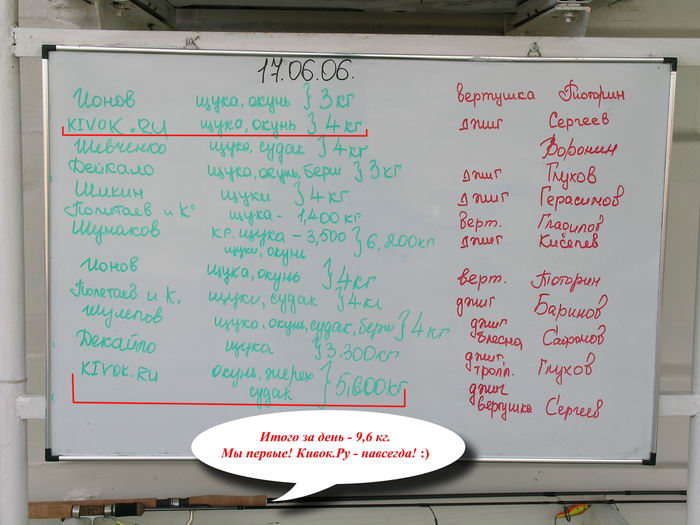 17.06.06.
Ионов щука, окунь } 3 кг вертушка Тюторин
KIVOK.RU щука, окунь } 4 кг джиг Сергеев
Шевченко щука, судак } 4 кг Воронин
Дейкало щука, окунь, берш } 3 кг джиг Глухов
Шикин щуки } 4 кг джиг Герасимов
Полетаев и К° щука - 1,400 кг верт.
Шунаков кг. щука - 3,500 } 6,200 кг джиг Киселев
щуки, окунь
Ионов щука, окунь } 4 кг верт. Тюторин
Полетаев и К. щуки, судак } 4 кг джиг Баринов
Шулепов щука, окунь, судак, берш } 4 кг джиг блесна Сафонов
Декайло щука } 3.300 кг джиг, тролл. Глухов
KIVOK.RU окунь, жерех } 5,600 кг джиг
судак вертушка Сергеев
Итого за день - 9,6 кг.
Мы первые! Кивок.Ру - навсегда! :)